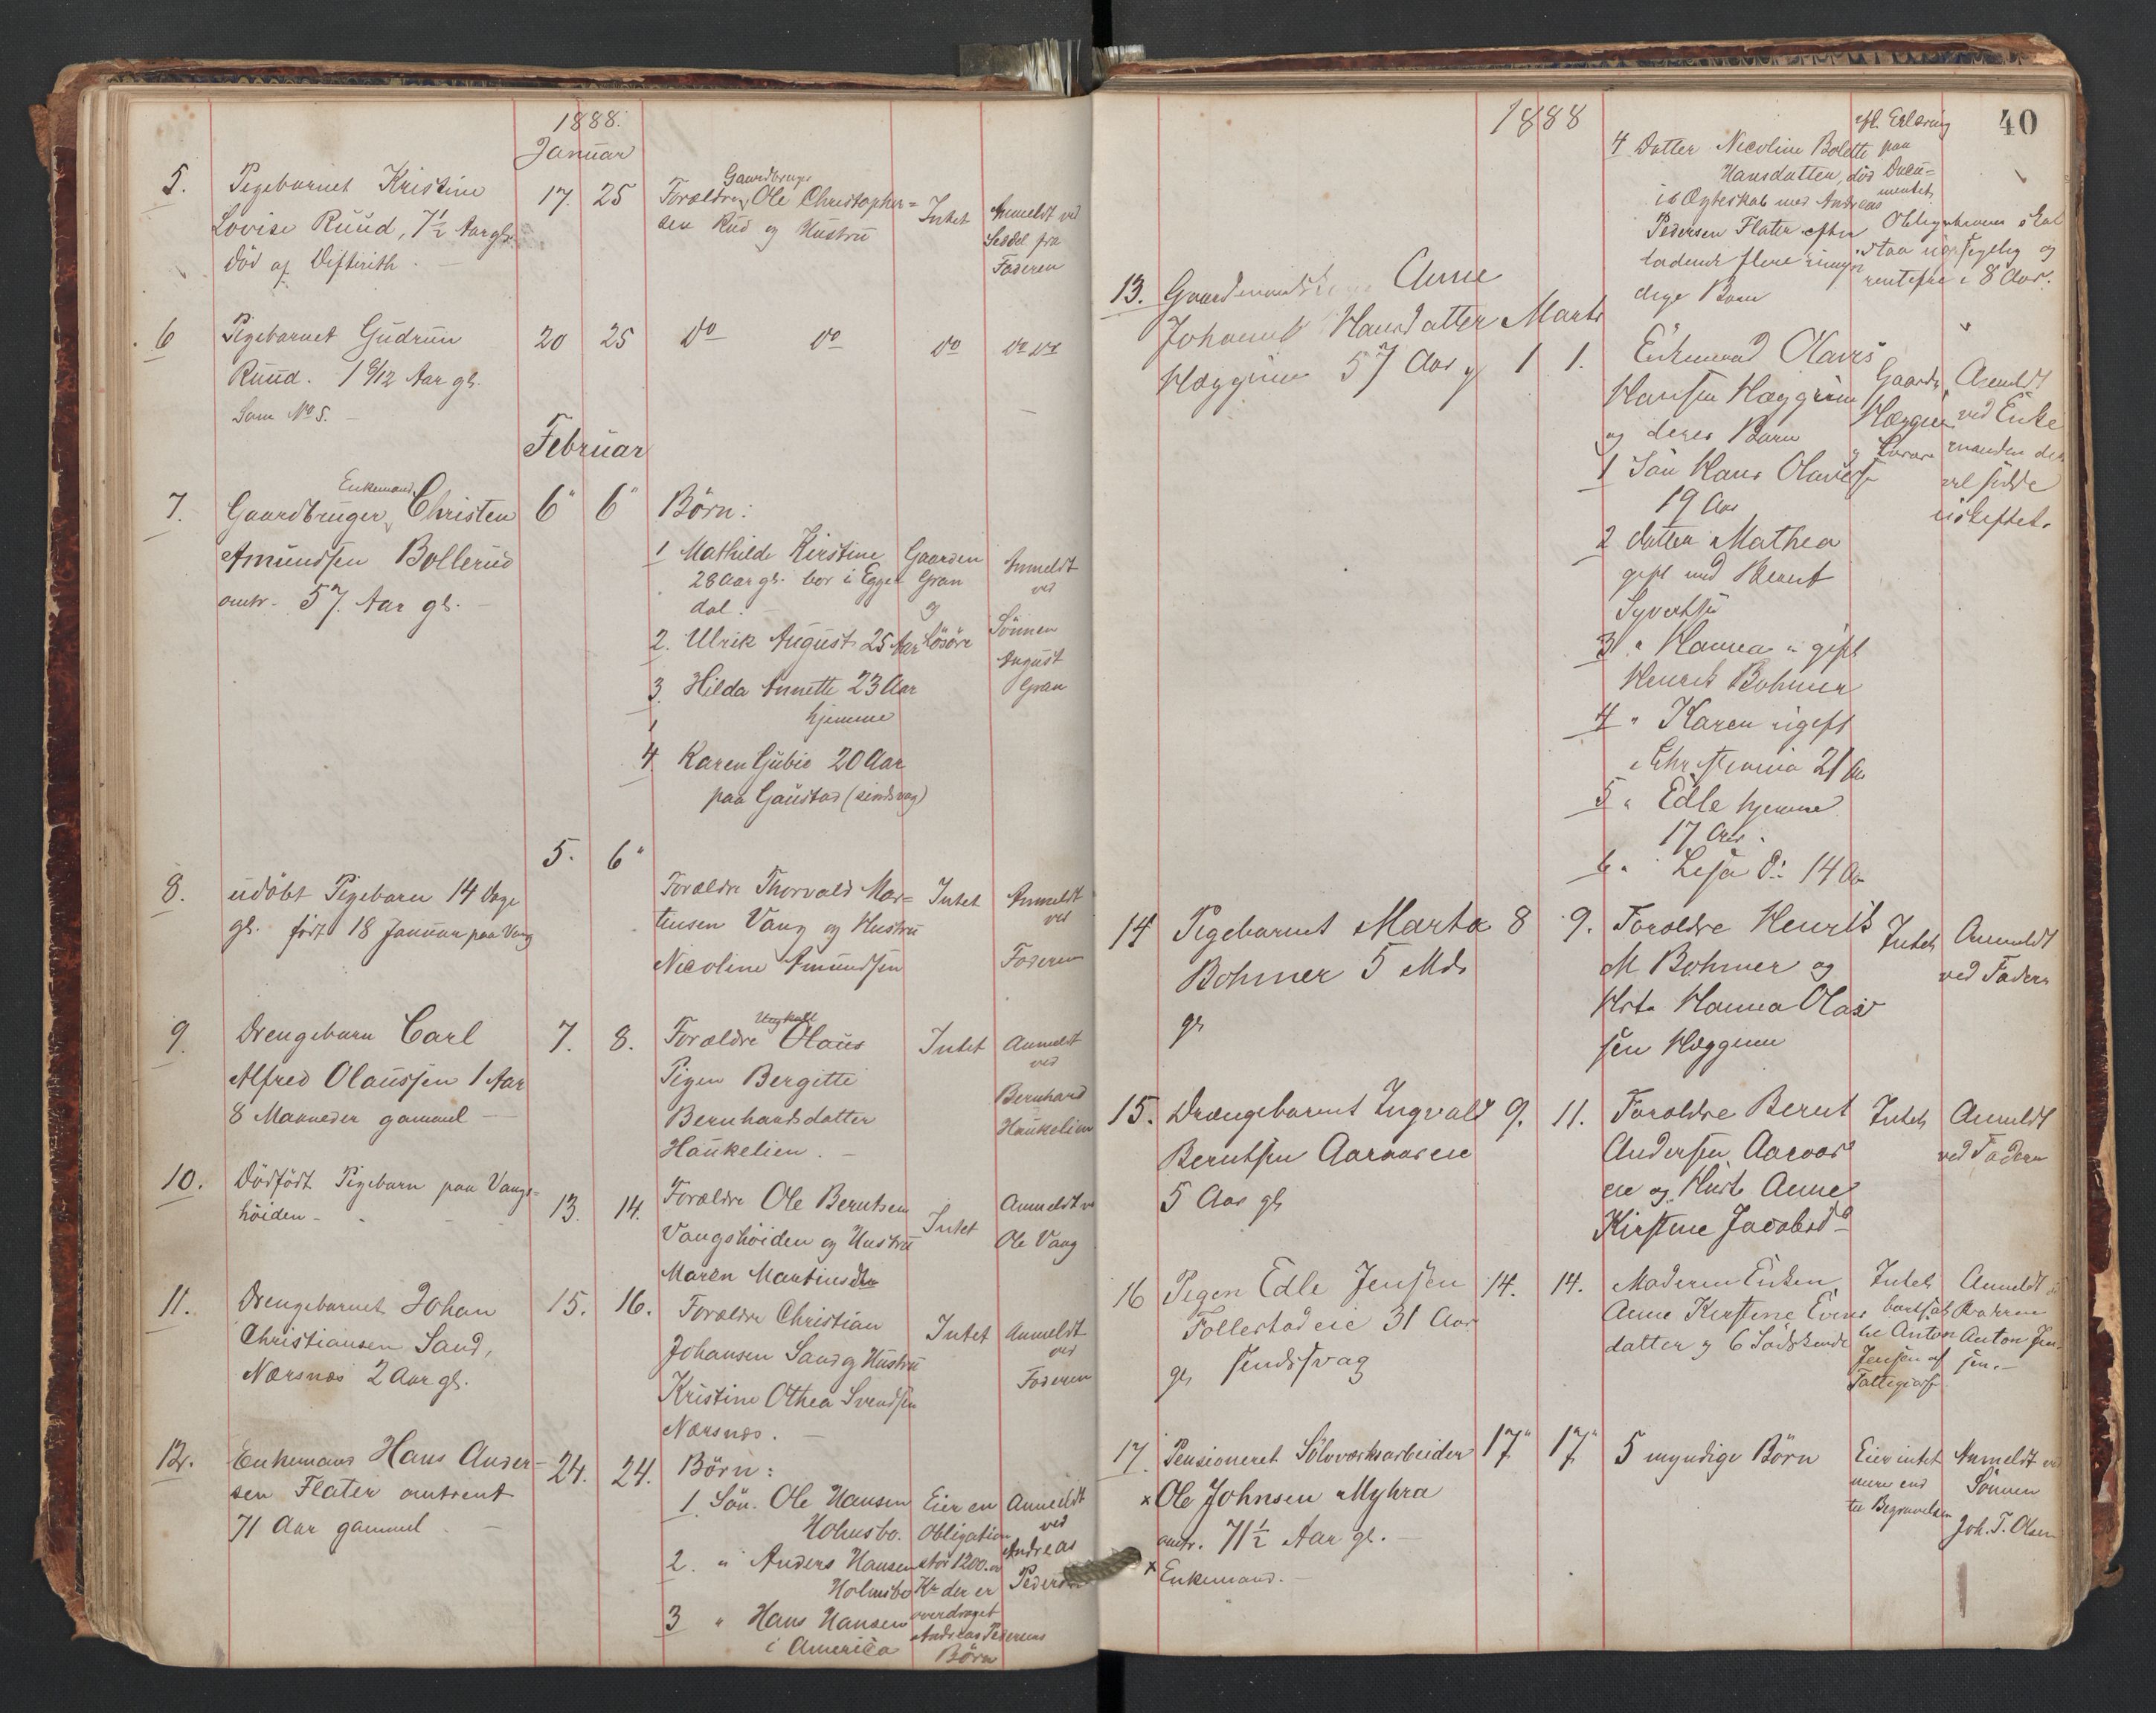 1888.
Januar
5.
Pigebarnet Kristine
Lovise Ruud, 7 1/2 Aar gl.
død af Diftirith.
17. 25
Gaardbruger
Forældre Ole Christopher=
sen Rud og Hustru
Intet
Anmeldt ved
Seddel fra
Faderen
6
Pigebarnet Gudrun
Ruud. 1 6/12 Aar gl.
Som No 5.
20 25
do do
do
do do
Februar
7.
Enkemand
Gaardbruger Christen
Amundsen Bollerud
omtr. 57 Aar gl.
6" 6"
Börn:
1 Mathilde Kirstine
28 Aar gl. bor i Egge
dal.
2. Ulrik August 25 Aar
3. Hilda Annette 23 Aar
hjemme
4 Karen Gubie 20 Aar
paa Gaustad (sindsvag)
Gaarden
Gran
og
Lösöre
Anmeldt
ved
Sönnen
August
Gran
8.
udöbt Pigebarn 14 Dage
gl. födt 18 Januar paa Vang
5. 6"
Forældre Thorvald Mar=
tinsen Vang og Hustru
Nicoline Amundsen
Intet
Anmeldt
ved
Faderen
9
Drengebarn Carl
Alfred Olaussen 1 Aar
8 Maaneder gammel
7. 8.
Ungkarl
Forældre Olaus
Pigen Bergitte
Bernhardsdatter
Haukelien.
Intet
Anmeldt
ved
Bernhard
Haukelien
10.
Dödfödt Pigebarn paa Vangs=
höiden
13. 14.
Forældre Ole Berntsen
Vangshöiden og Hustru
Maren Martinsdtr
Intet
Anmeldt v
Ole Vang
11.
Drengebarnet Johan
Christiansen Sand,
Nærsnæs 2 Aar gl.
15. 16.
Forældre Christian
Johansen Sand og Hustru
Kristine Othea Svendsen
Nærsnæs.
Intet
Anmeldt
ved
Faderen
12.
Enkemand Hans Ander-
sen Flater omtrent
71 Aar gammel
24. 24.
Börn:
1. Sön. Ole Hansen
Holmsbo.
2. " Anders Hansen
Holmsbo
3 " Hans Hansen
i America
Eier en
Obligation
stor 1200
Kr der er
overdraget
Andreas Pedersens
Börn
Anmeldt
ved
Andreas
Pedersen
1888
40
4 Datter Nicoline Bolette
Hansdatter, död
i Ægteskab med Andreas
Pedersen Flater efter
ladende flere umyn
dige Börn
efl. Erklæring
paa
Docu=
mentet,
Obligationen skal
staa uopsigelig og
rentefri i 8 Aar.
13.
Gaardmands Anne
Johanne Hansdatter
Hæggum 57 Aar gl
Marts
1 1.
Enkemand Olaves
Hansen Hæggum
og deres Barn
1 Sön Hans Olavessen
19 Aar
2 datter Mathea
gift med Bernt
Syvertsen
3 " Hanna " gift
Henrik Bohmer
4 " Karen ugift
i Christiania 21 Aar
5 " Edle hjemme
17 Aar.
6 " Lesa do 14 Aar
Gaarden
Hæggum
og Lösöre
Anmeldt
ved Enke
manden der
vil sidde
uskiftet.
14
Pigebarnet Marta
Bohmer 5 Mdr
gl
8 9.
Foroldre Henrik
M Bohmer og
Hstr Hanna Olav
sen Hæggum
Intet
Anmeldt
ved Fadern
15.
Drængebarnet Ingvald
Berntsen Aaraaseie
5 Aar gl
9. 11.
Foroldre Bernt
Andersen Aaraas
eie og Hust. Anne
Kirstine Jacobsd
Intet
Anmeldt
ved Fadern
16
Pigen Edle Jensen
Follestadeie 31 Aar
gl sindssvag
14. 14.
Moderen Enken
Anne Kirstine Evens
datter og 6 Sødskende
Intet
bortsat
til Anton
Jensen af
Fattigvæs
Anmeldt
Broderen
Anton Jen
sen.
17
Pensioneret Sölvværksarbeider
x Ole Johnsen Myhra
omtr. 71 1/2 Aar gl.
x Enkemand.
17" 17"
5 myndige Börn
Eier intet
mere end
til Begravelsen
Anmeldt ved
Sönnen
Joh. T. Olsen